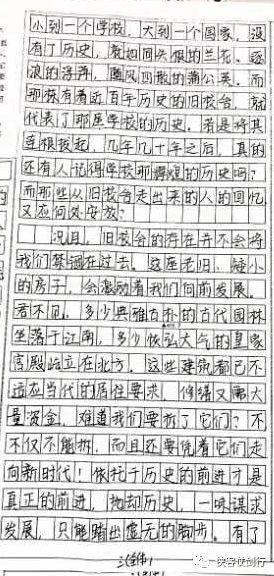 小到一个学校，大到一个国家，没
有了历史，就如同失根的兰花、逐
浪的浮萍，飘风四散的蒲公英。而
那栋有着近百年历史的旧校舍，就
代表了那座学校的历史。若是将其
连根拔起，几年几十年之后，真的
还有人记得学校那辉煌的历史吗？
而那些从旧校舍走出来的人的回忆
又应何处安放？
况且，旧校舍的存在并不会将
我们禁锢在过去。这座老旧、矮小
的房子，会激励着我们向前发展。
君不见，多少典雅古朴的古代园林
坐落于江南，多少恢弘大气的皇家
宫殿屹立在北方。这些建筑都已不
适应当代的居住要求，修缮又需大
量资金，难道我们要拆了它们？不
不仅不能拆，而且还要凭着它们走
向新时代！依托于历史的前进才是
真正的前进，抛却历史，一味谋求
发展，只能踏出虚无的脚步。有了
一侠客仗剑行